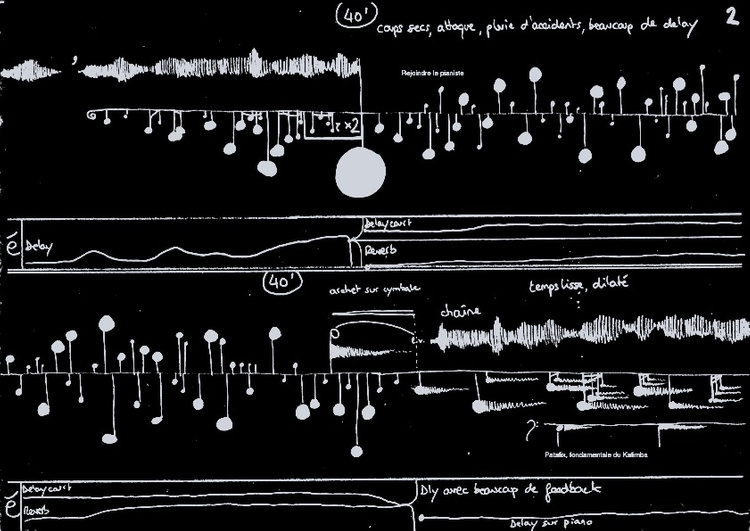 40'
coups secs, attaque, pluie d'accidents, beaucoup de delay
2
Rejoindre le pianiste
x2
Delay court
é
Delay
Reverb
40'
archet sur cymbale
temps lisse, dilaté
chaîne
Patafix, fondamentale du Kalimba
Delay court
é
Reverb
Dly avec beaucoup de feedback
Delay sur piano